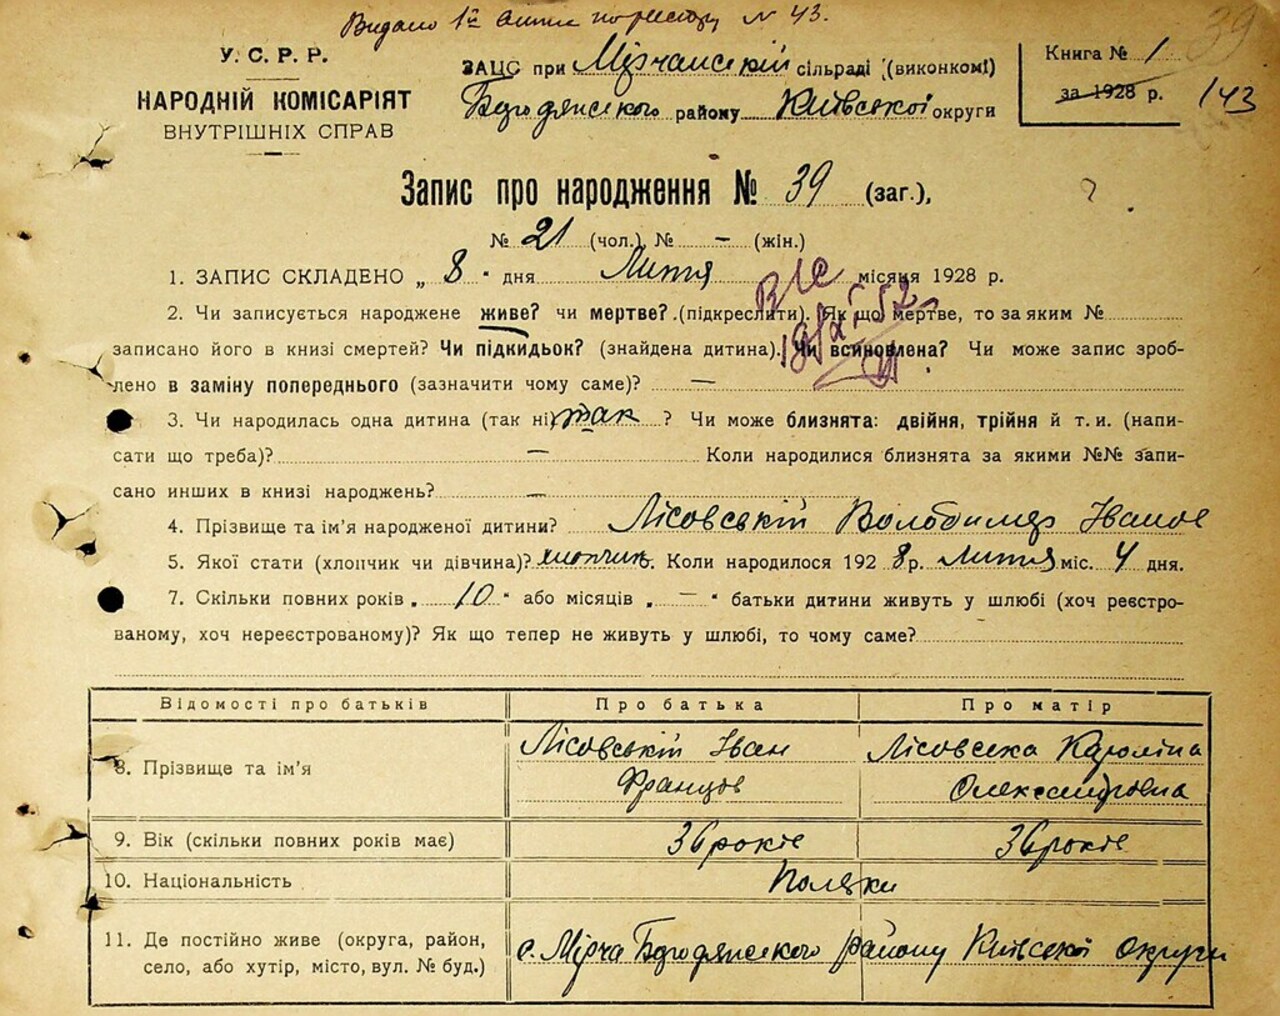 Видано 1й по реєстру N 43.
39
У. С. Р. Р.
НАРОДНІЙ КОМІСАРІЯТ
ВНУТРІШНІХ СПРАВ
ЗАЦС при Мірчанській сільраді (виконкомі)
Бородянського району Київської округи
Книга № 1
за 1928 р. 143
Запис про народження № 39 (заг.),
№ 21 (чол.), № — (жін.)
1. ЗАПИС СКЛАДЕНО „ 8 " дня Лютня місяця 1928 р.
2. Чи записується народжене живе? чи мертве? (підкреслити). Як що мертве, то за яким №
записано його в книзі смертей? Чи підкидьок? (знайдена дитина). Чи всиновлена? Чи може запис зроб-
лено в заміну попереднього (зазначити чому саме)? —
3. Чи народилась одна дитина (так ні) так ? Чи може близнята: двійня, трійня й т. и. (напи-
сати що треба)? — Коли народилися близнята за якими №№ запи-
сано инших в книзі народжень? —
4. Прізвище та ім'я народженої дитини? Лісовській Володимер Іванов
5. Якої стати (хлопчик чи дівчина)? хлопчик. Коли народилося 192 8 р. Лютня міс. 4 дня.
7. Скільки повних років „ 10 " або місяців „ — " батьки дитини живуть у шлюбі (хоч реєстро-
ваному, хоч нереєстрованому)? Як що тепер не живуть у шлюбі, то чому саме?
Відомості про батьків Про батька Про матір
8. Прізвище та ім'я Лісовській Іван Францов Лісовська Кароліна Олександровна
9. Вік (скільки повних років має) 36 років 36 років
10. Національність Поляки
11. Де постійно живе (округа, район,
село, або хутір, місто, вул. № буд.) с. Мірча Бородянського району Київської округи